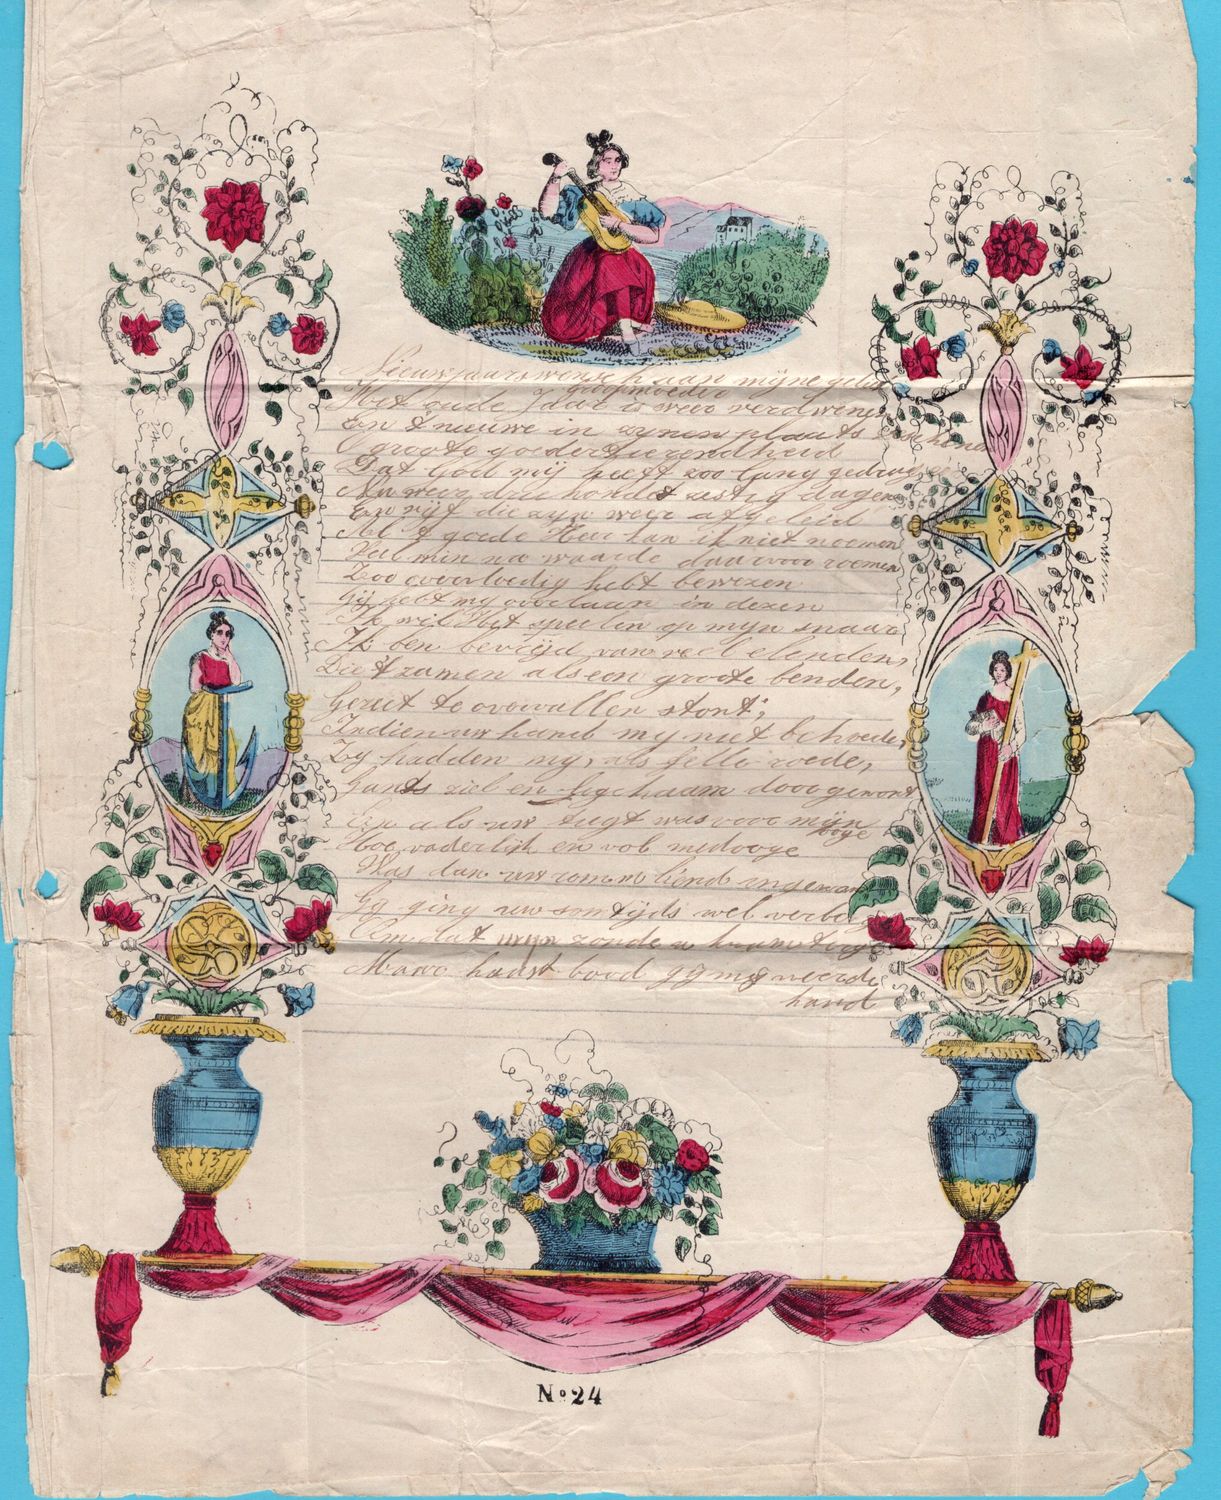 Nieuwjaarswensch aan mijne
Grootmoeder
Het oude Jaar is weer verdwenen
En t nieuwe in zynen plaats
O groote goedertierendheid
Dat God mij heeft zoo lang
Nu weer drie hondet zestig dagen
En vijf die zyn weer afgeleid
Al t goede Heer kan ik niet noemen
Veel min na waarde daarvoor roemen
Zoo overvloedig hebt bewezen
Gij hebt my in dezen
Ik wil Het speelen op mijn snaar
Ik ben bevrijd van veel elenden,
Die t zamen als een groote benden,
Gerut te overvallen stont;
Indien uw hand my niet behoede,
Zy hadden my, als felle roede,
Gants ziel en ligchaam door gewont
En als uw tugt was voor mijn
ooge
Hoe vaderlijk en vol medooge
Was dan uw
Gy ging uw somtijds wel
Om dat mijn zonde u
Maar haast bood gy my weerde
hand
No. 24